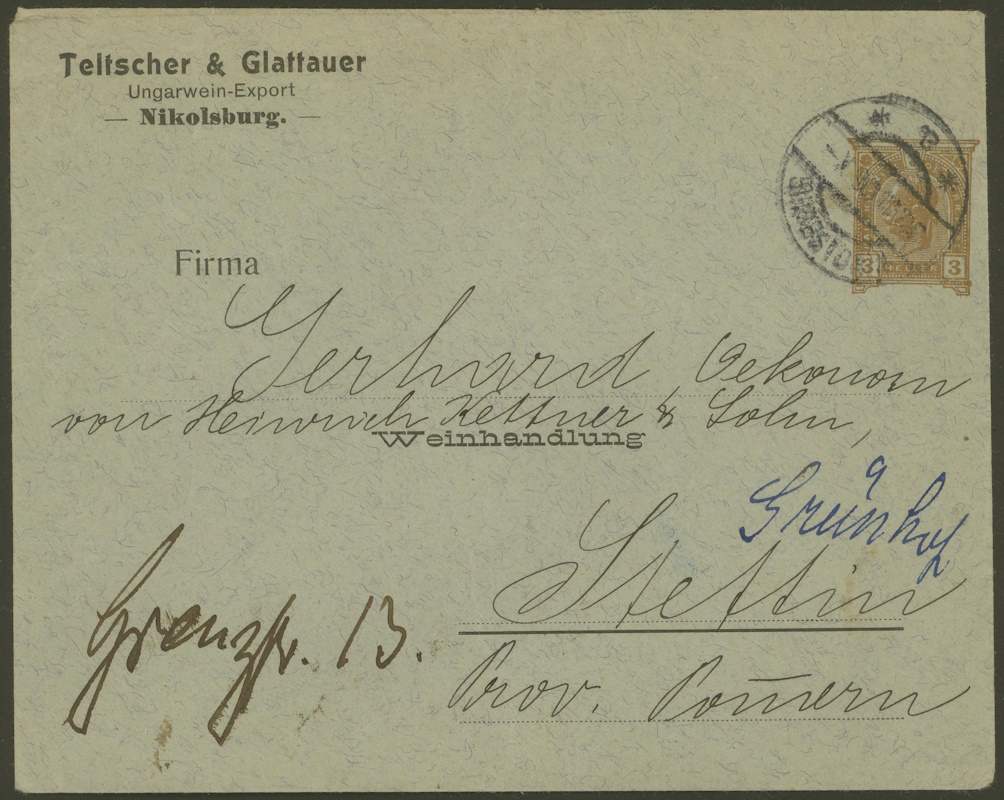 Teltscher & Glattauer
Ungarwein-Export
— Nikolsburg. —
3 HELLER 3
Firma
Gerhard, Oekonom
von Heinrich Kettner & Sohn,
Weinhandlung
Grünhof
Stettin
Grenzstr. 13.
Prov. Pom̄ern